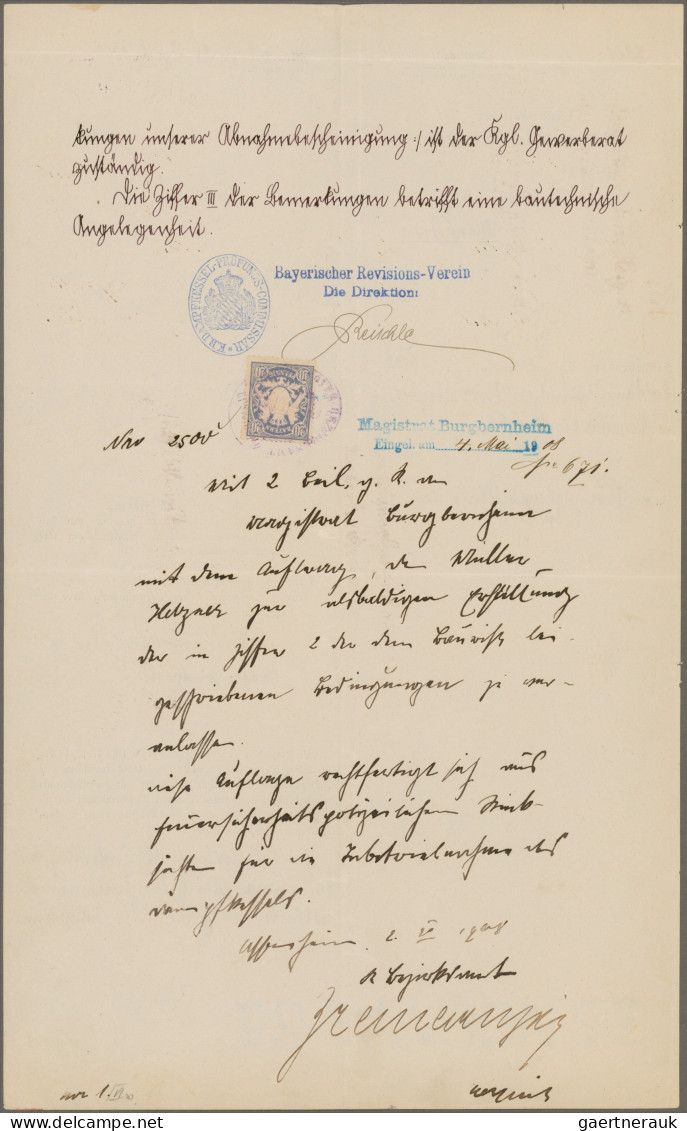 kungen unserer Abnahmebescheinigung :/ ist der Kgl. Gewerberat
zuständig.
Die Ziffer III der Bemerkungen betrifft eine bautechnische
Angelegenheit.
K.B. DAMPFKESSEL-PRÜFUNGS-COMMISSÄR
Bayerischer Revisions-Verein
Die Direktion:
Reischle
Magistrat Burgbernheim
Eingel. am 4. Mai 1908
No 671.
Nro 2500
Mit 2 Beil. g. R. dem
Magistrat Burgbernheim
mit dem Auftrag, den Müller
Hetzner zur alsbaldigen Erfüllung
der in Ziffer 2 der dem Bauriß bei-
geschriebenen Bedingungen zu ver-
anlassen.
Diese Auflage rechtfertigt sich aus
feuersicherheitspolizeilichen Rück-
sichten für die Inbetriebnahme des
Dampfkessels.
Uffenheim, 2. V. 1908
K Bezirksamt